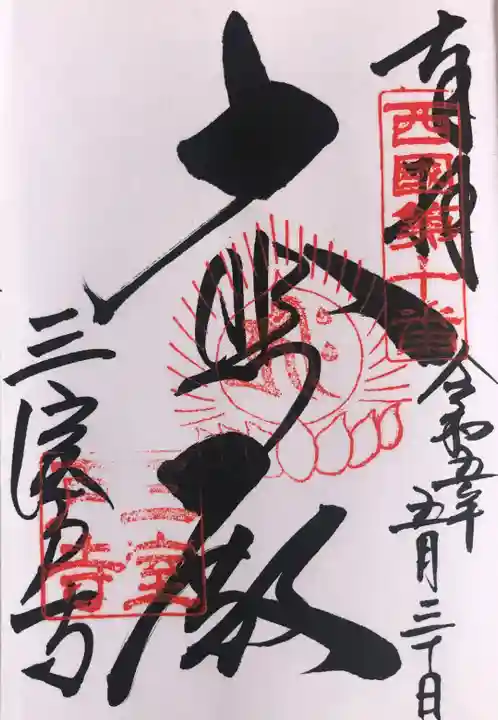 奉拝
西國第十番
令和五年
五月三十日
大悲殿
三室戸寺
三室
戸寺